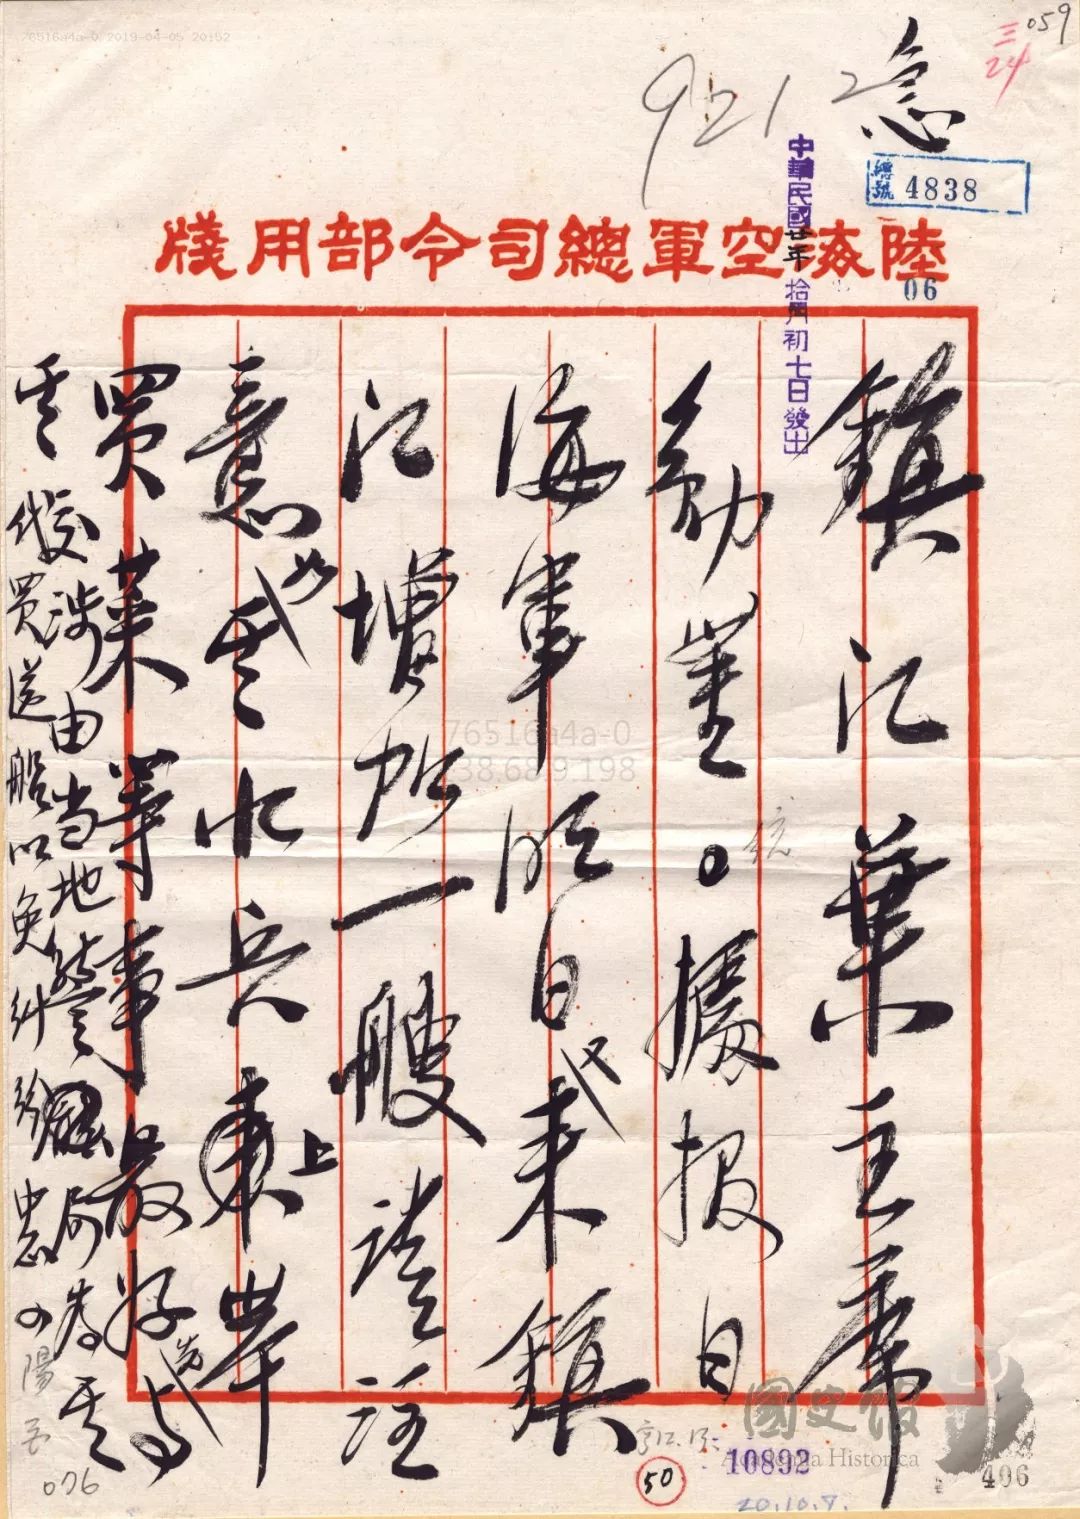 059
三
24
急
9212
總號 4838
中華民國廿年拾月初七日發出
陸海空軍總司令部用牋
06
鎮江葉主席
勛鑒。據報日
海軍明日又來鎮
江增加一艘請注
意如其水兵上岸
買菜等事最好先与
其交涉由当地警局為其
代買送船以免糾紛中 陽
076
50
10892
20.10.7.
406
國史館
Academia Historica
76516a4a-0 2019-04-05 20:52
76516a4a-0
238.68.9.198